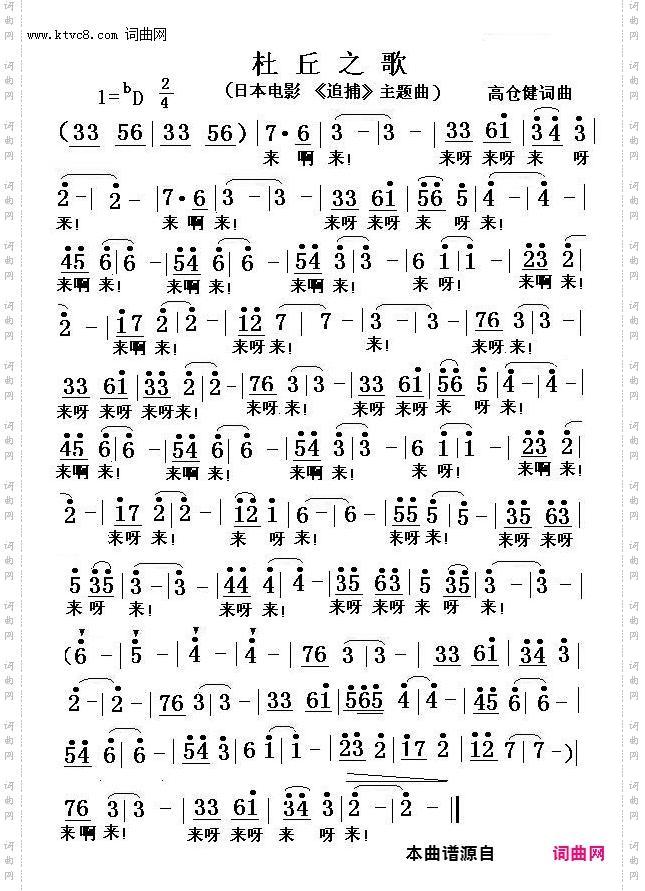 www.ktvc8.com 词曲网
杜丘之歌
1=bD 2/4 (日本电影 《追捕》主题曲) 高仓健词曲
(33 56|33 56)|7·6|3-|3-|33 61|34 3|
来啊来! 来呀来呀来 呀
2-|2-|7·6|3-|3-|33 61|56 5|4-|4-|
来! 来啊来! 来呀来呀来 呀来!
45 6|6-|54 6|6-|54 3|3-|6 1|1-|23 2|
来啊来! 来啊来! 来啊来! 来呀! 来啊来!
2-|17 2|2-|12 7|7-|3-|3-|76 3|3-|
来啊来! 来呀来! 来! 来呀来!
33 61|33 2|2-|76 3|3-|33 61|56 5|4-|4-|
来呀来呀来呀来! 来呀来! 来呀来呀来 呀来!
45 6|6-|54 6|6-|54 3|3-|6 1|1-|23 2|
来啊来! 来啊来! 来啊来! 来 呀! 来啊来!
2-|17 2|2-|12 1|6-|6-|55 5|5-|35 63|
来呀来! 来呀来! 来呀来! 来呀来呀
5 35|3-|3-|44 4|4-|35 63|5 35|3-|3-|
来 呀 来! 来呀来! 来呀来呀来 呀 来!
(6-|5-|4-|76 3|3-|33 61|34 3|
2-|2-|76 3|3-|33 61|565 5|4|4-|45 6|
54 6|6-|54 3|6 1|1-|23 2|17 2|12 7|7-)|
76 3|3-|33 61|34 3|2-|2-‖
来啊来! 来呀来呀来 呀来!
本曲谱源自 词曲网
词曲网